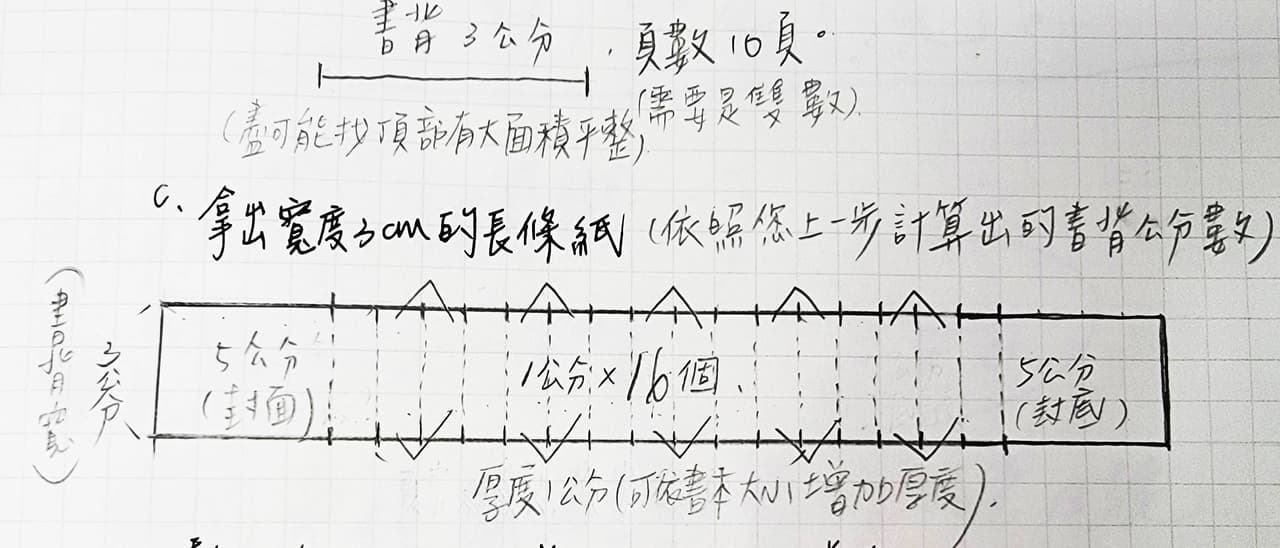 書背3公分,頁數10頁。
(需要是雙數).
(盡可能找頂部有大面積平整).
C、拿出寬度3cm的長條紙(依照您上一步計算出的書背公分數)
(書背寬)
3公分
5公分
(封面)
1公分×16個.
5公分
(封底)
厚度1公分(可依書本大小增加厚度).